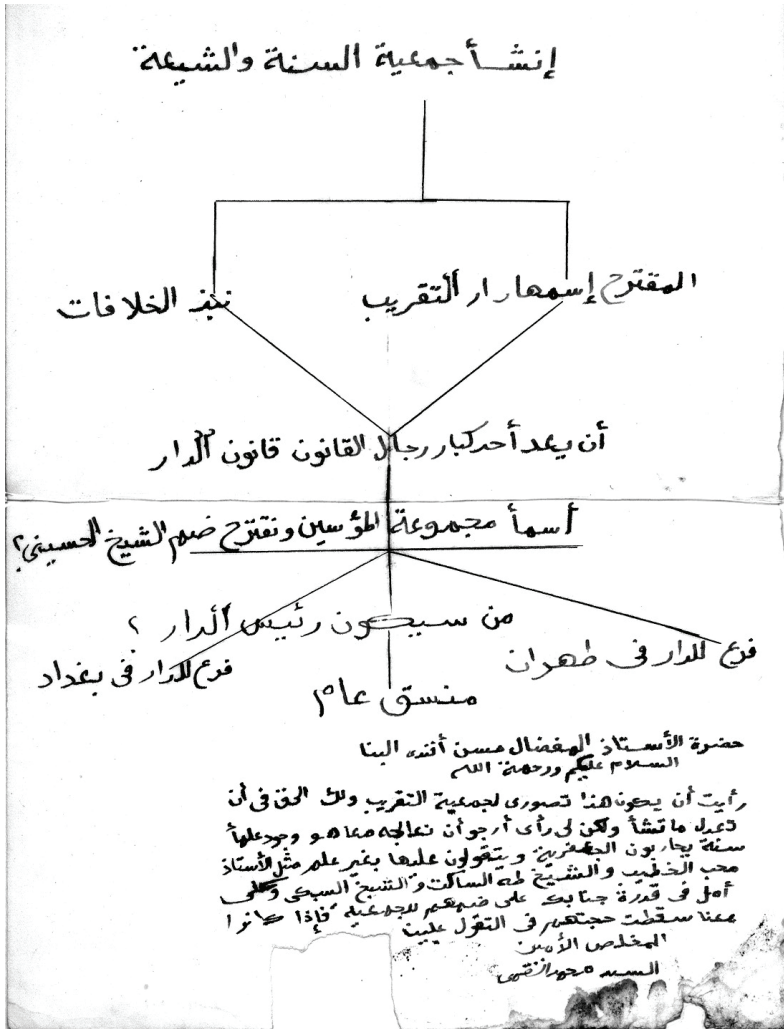 إنشأ جمعية السنة والشيعة
المقترح إسمها دار التقريب
نبذ الخلافات
أن يعد أحد كبار رجال القانون قانون الدار
أسمأ مجموعة المؤسين ونقترح ضم الشيخ الحسيني؟
من سيكون رئيس الدار ؟
فرع للدار فى طهران
فرع للدار فى بغداد
منسق عام
حضرة الأستاذ المفضال حسن أفندى البنا
السلام عليكم ورحمة الله
رأيت أن يكون هذا تصورى لجمعية التقريب ولك الحق فى أن
تعدل ما تشأ ولكن لى رأى أرجو أن نعالجه معا هو وجود علمأ
سنة يحاربون الجعفرية ويتقولون عليها بغير علم مثل الأستاذ
محب الخطيب والشيخ طه الساكت والشيخ السبكى وكلى
أمل فى قدرة جنابك على ضمهم للجمعية فإذا كانوا
معنا سقطت حجتهم فى التقول علينا
المخلص الأمين
السيد محمد القمى